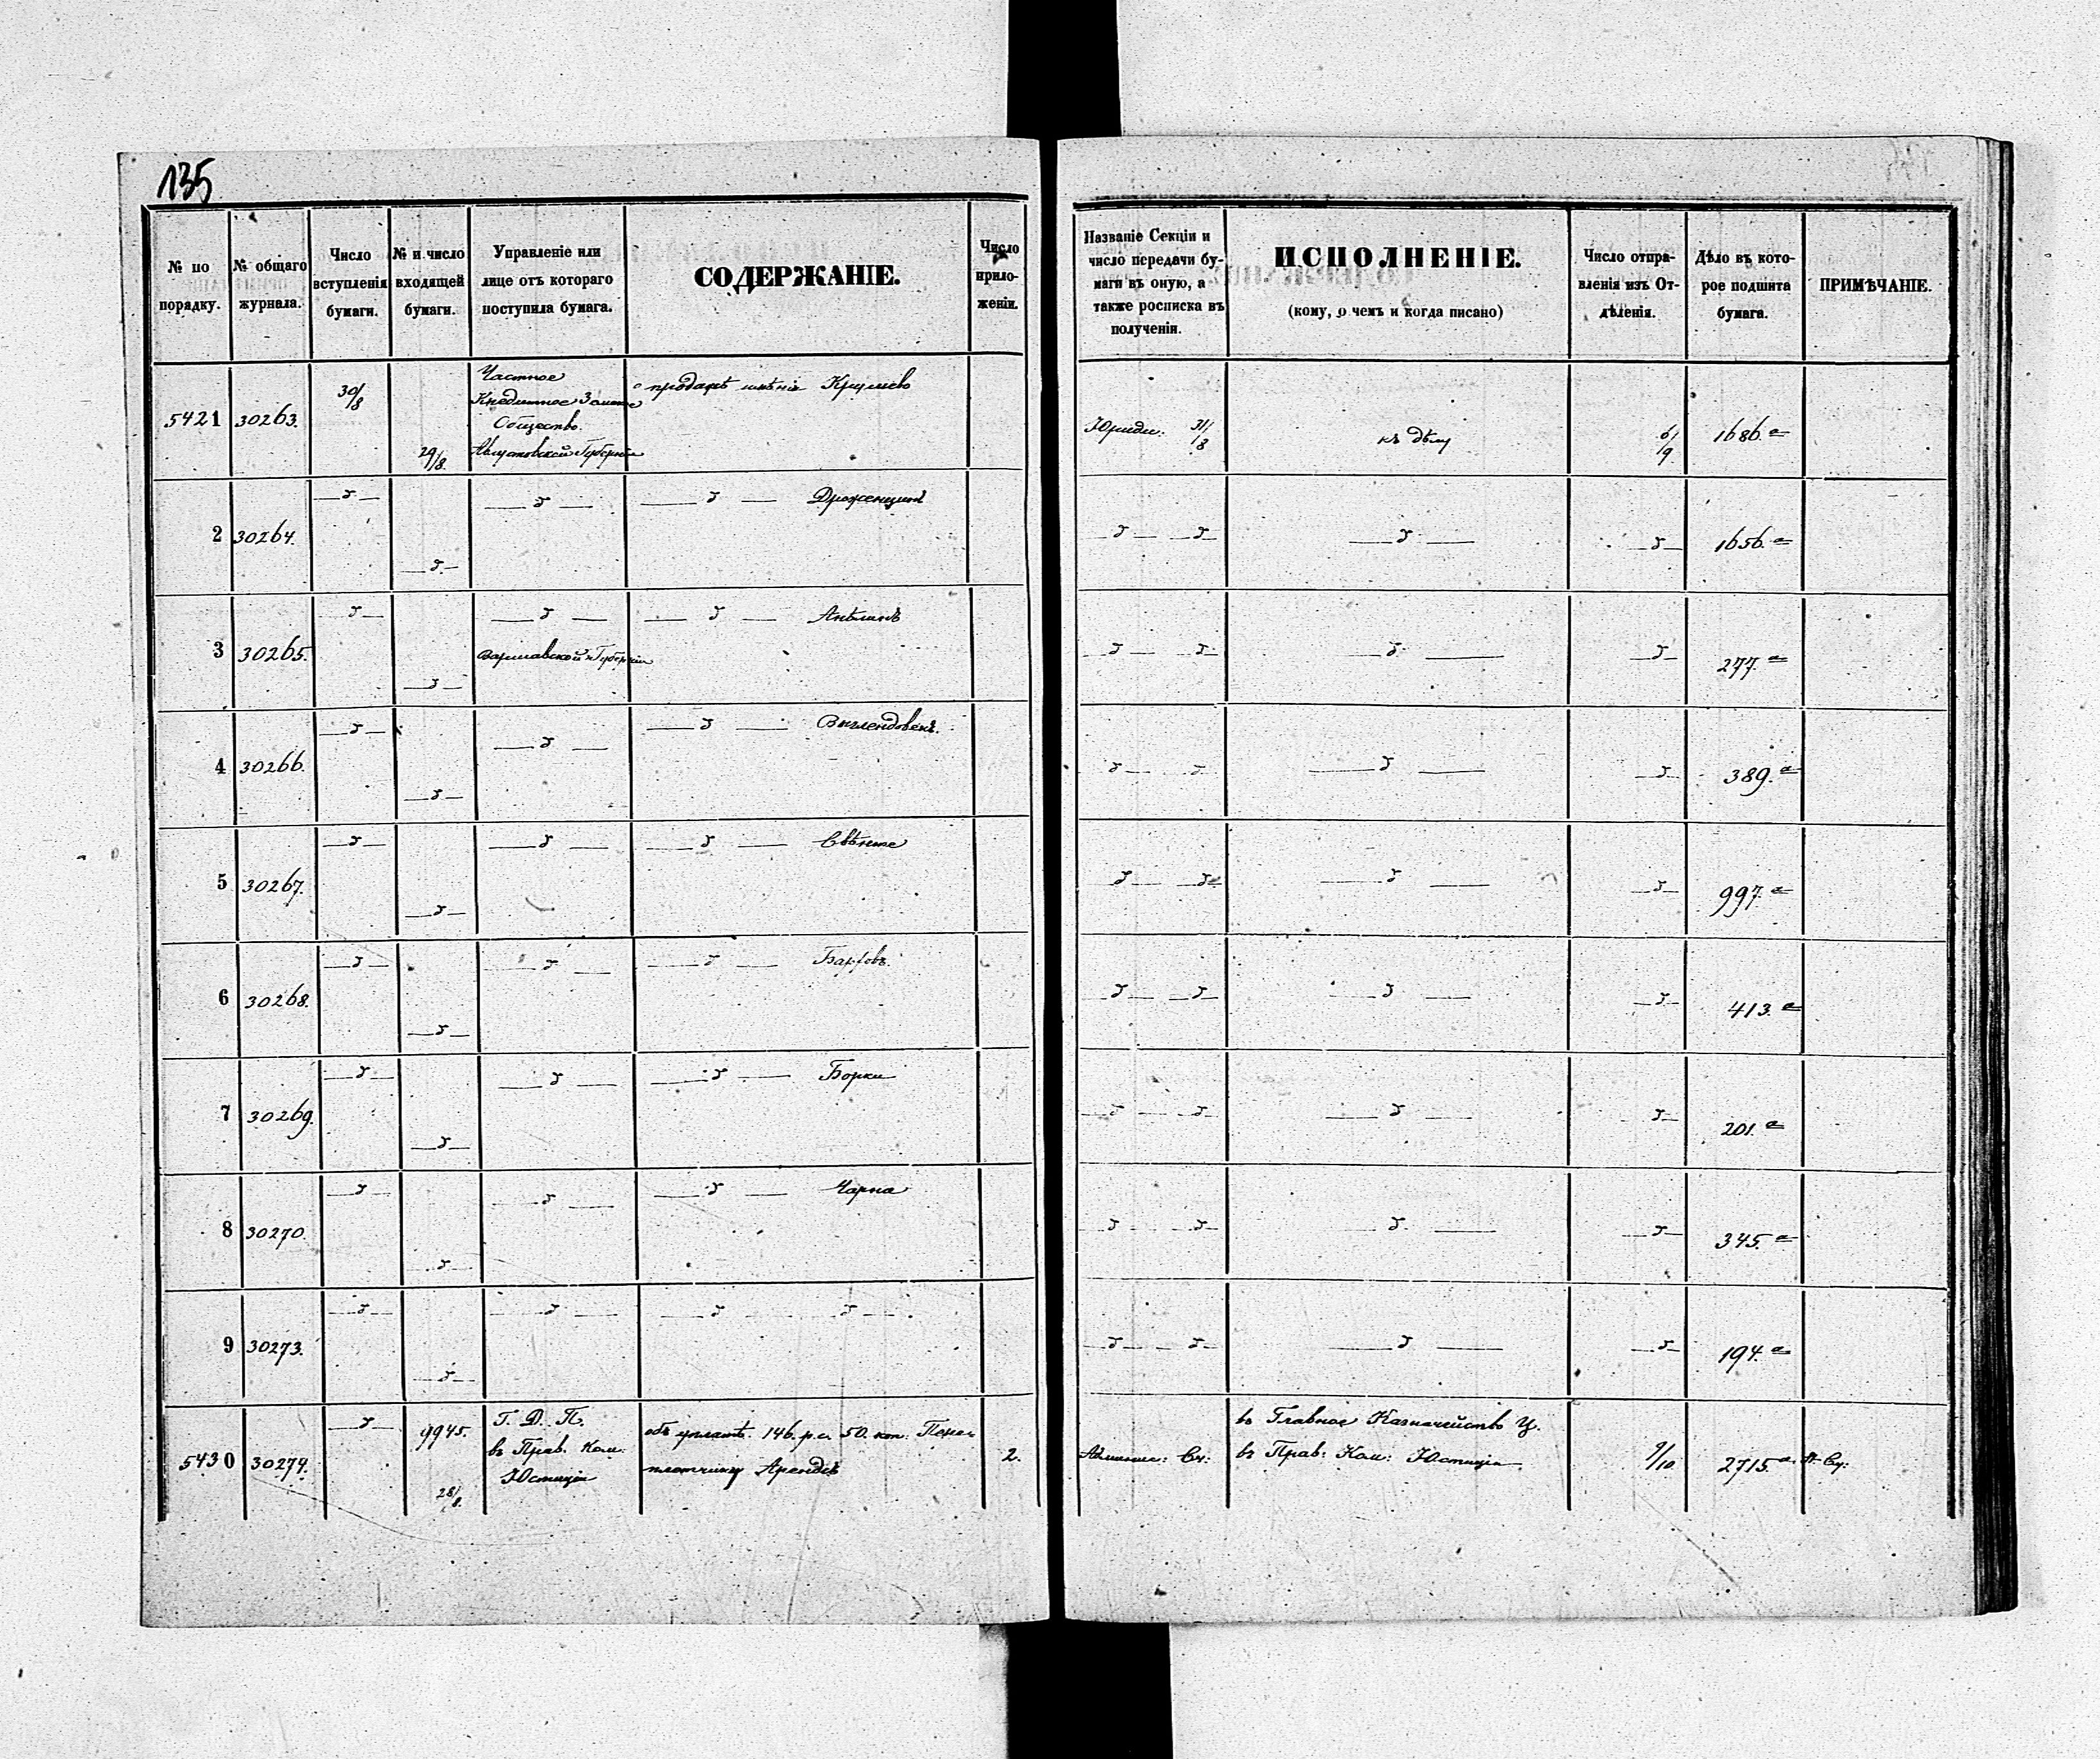 135
№ по порядку.
№ общаго журнала.
Число вступленія бумаги.
№ и число входящей бумаги.
Управленіе или лице отъ котораго поступила бумага.
СОДЕРЖАНІЕ.
Число прило-женіи.
Названіе Секціи и число передачи бу-маги въ оную, а также росписка въ полученіи.
ИСПОЛНЕНІЕ.
(кому, о чемъ и когда писано)
Число отпра-вленія изъ От-дѣленія.
Дѣло въ кото-рое подшита бумага.
ПРИМѢЧАНІЕ.
5421 30263. 30/8 29/8.
Частное
Кредитное Земское
Общество
Августовской Губерніи
о продажѣ имѣнія
Юриди. 31/8 къ дѣлу 6/9 1686.а
2 30264. 1656.а
3 30265.
Варшавской Губерніи
277.а
4 30266. 389.а
5 30267. 997.а
6 30268. 413.а
7 30269. Борки 201.а
8 30270. Чарна 345.а
9 30273. 194.а
5430 30274. 9945. 28/8.
Г. Д. П.
въ Прав. Ком.
Юстиціи
объ уплатѣ 146. р. с. 50. коп.
Арендѣ
2.
въ Главное Казначейство Ц.
въ Прав: Ком: Юстиціи
9/10 2715.а